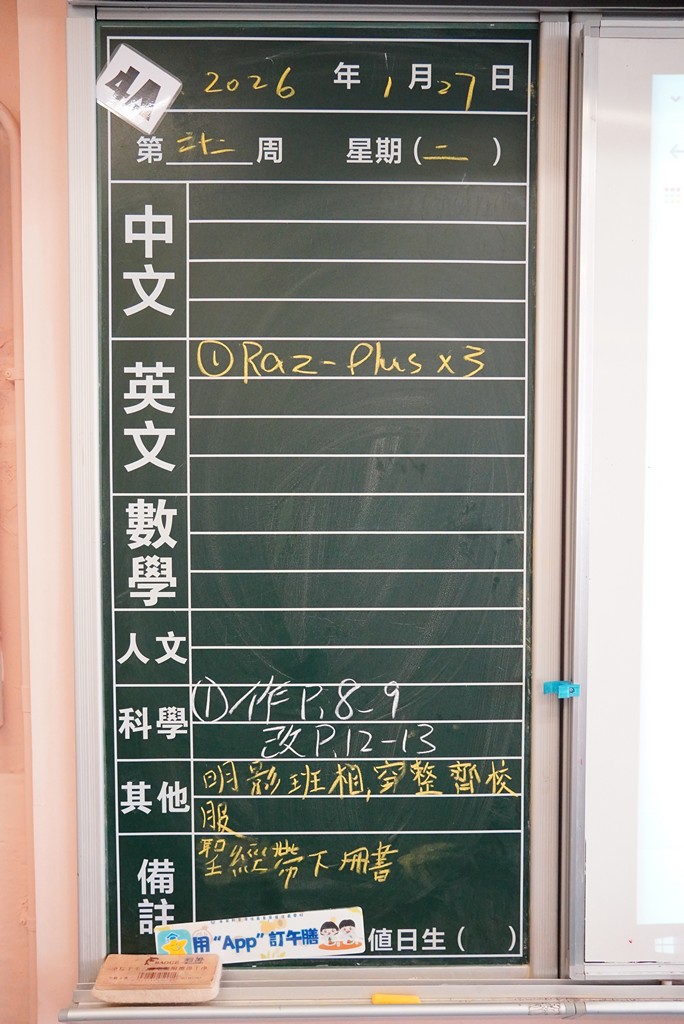 4A
2026 年 1 月 27 日
第 廿二 周 星期 ( 二 )
中文
英文
① Raz-Plus x 3
數學
人文
科學
① 作 P.8-9
改 P.12-13
其他
明影班相,穿整齊校
服
備註
聖經帶下冊書
用“App”訂午膳
值日生 ( )